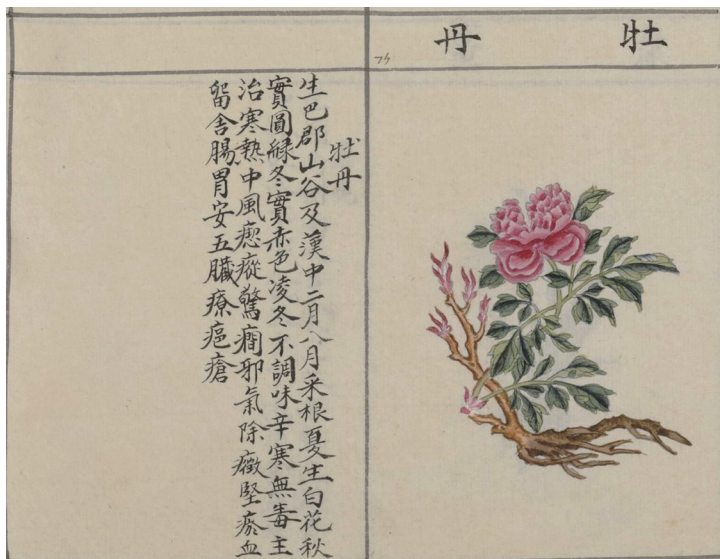 牡丹
牡丹
生巴郡山谷及漢中二月八月采根夏生白花秋
實圓緑冬實赤色凌冬不調味辛寒無毒主
治寒熱中風瘛瘲驚癇邪氣除癥堅瘀血
留舍腸胃安五臟療疤瘡